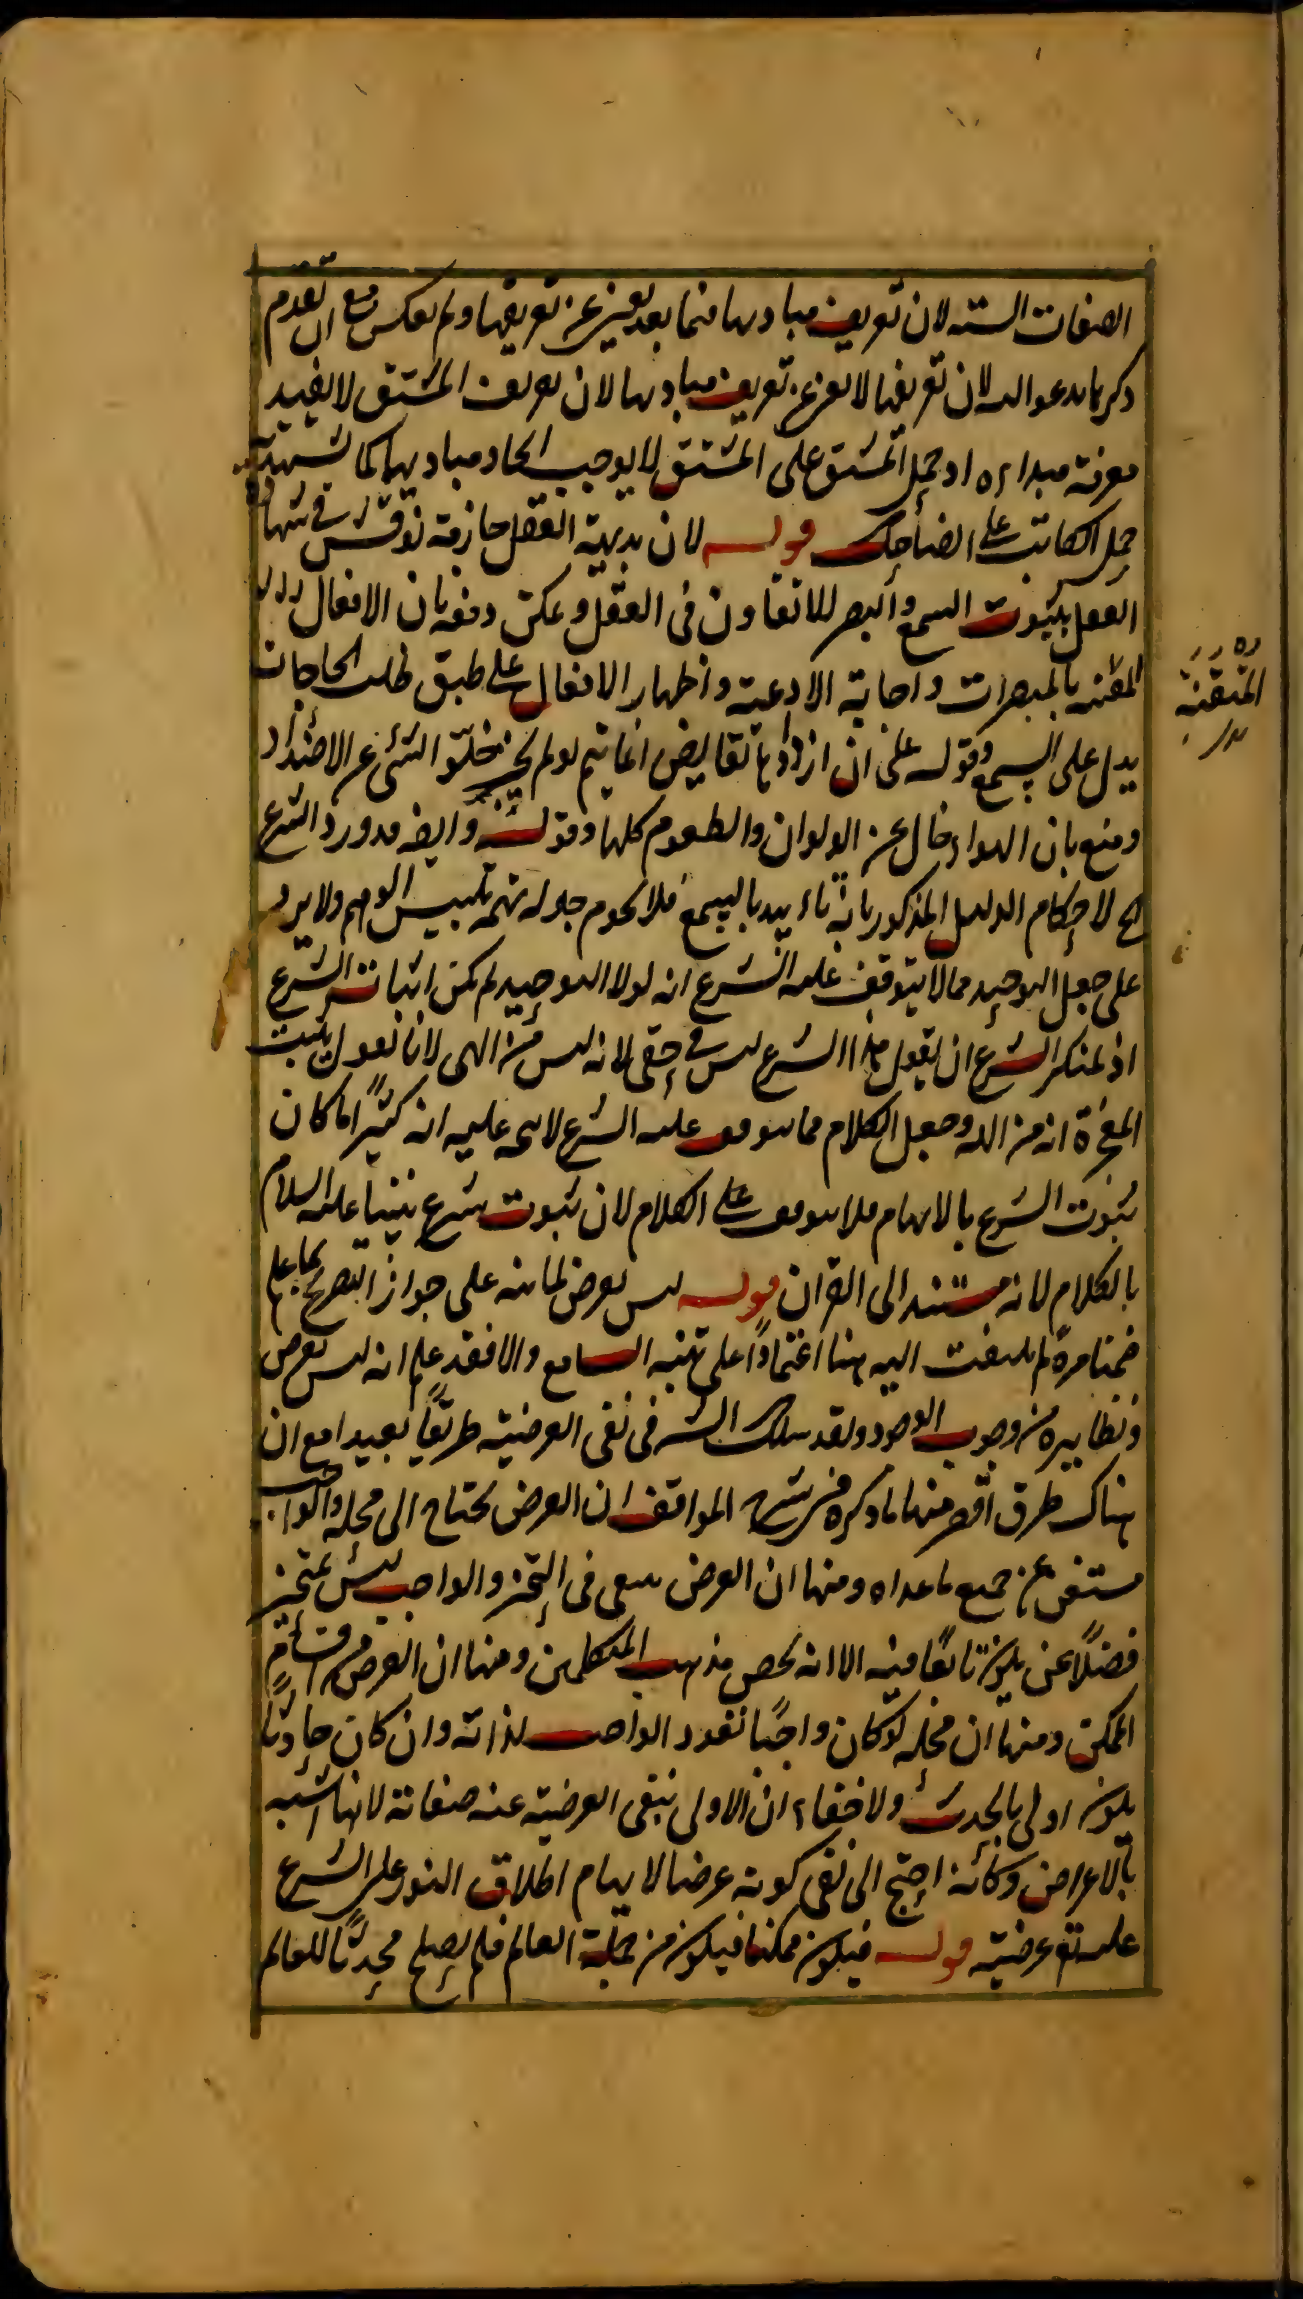 الصفات الستة لان تعريف مباديها فيما بعد يغني عن تعريفها ولم يعكس مع ان تقدم
ذكرها يدعو اليه لان تعريفها لا يغني عن تعريف مباديها لان تعريف المشتق لا يفيد
معرفة مبداءه اذ حمل المشتق على المشتق لا يوجب اتحاد مباديهما كما يشهد به
حمل الكاتب على الضاحك قوله لان بديهة العقل جازمة نوقش في شهادة
العقل بثبوت السمع والبصر للاتفاون في العقل ويمكن دفعه بان الافعال
المتقنه بالمبصرات واجابة الادعية واظهار الافعال على طبق طلب الحاجات
يدل على السمع وقوله على ان اضدادها نقايض انما يتم لو لم يجز خلو الشئ عن الاضداد
ومنع بان الهواء خال عن الالوان والطعوم كلها وقوله وايضا قد ورد الشرع
الخ لاحكام الدليل المذكور بانه تاءييد بالسمع فلا يحوم حوله تهمة تلبيس الوهم ولا يرد
على جعل التوحيد مما لا يتوقف عليه الشرع انه لولا التوحيد لم يمكن اثبات الشرع
اذ لمنكر الشرع ان يقول هذا الشرع ليس في حقي لانه ليس من الهي لانا نقول يثبت
المعجزة انه من الله وجعل الكلام مما يتوقف عليه الشرع لا يتجه عليه انه كثيرا ما كان
ثبوت الشرع بالالهام فلا يتوقف على الكلام لان ثبوت شرع نبينا عليه السلام
بالكلام لانه مستند الى القران قوله ليس بعرض لما نبه على جواز التصريح بما علم
ضمنا مرة لم يلتفت اليه هنا اعتمادا على تنبه السامع والا فقد علم انه ليس بعرض
ونظايره من وجوب الوجود ولقد سلك الش في نفي العرضية طريقا بعيدا مع ان
هناك طرق اقصر منها ما ذكره في شرح المواقف ان العرض يحتاج الى محله والواجب
مستغن عن جميع ما عداه ومنها ان العرض تبعي في التحيز والواجب ليس بمتحيز
فضلا عن يكون تابعا فيه الا انه يخص مذهب المتكلمين ومنها ان العرض من اقسام
الممكن ومنها ان محله لو كان واجبا تعدد الواجب لذاته وان كان حادثا
يكون اولى بالحدث ولا خفاء ان الاولى بنفي العرضية عنه صفاته لانها اشبه
بالاعراض وكأنه احتج الى نفي كونه عرضا لايهام اطلاق النور على الشرع
عليه تع عرضيته قوله فيكون ممكنا فيكون من جملة العالم فلم يصلح محدثا للعالم
المتقنة